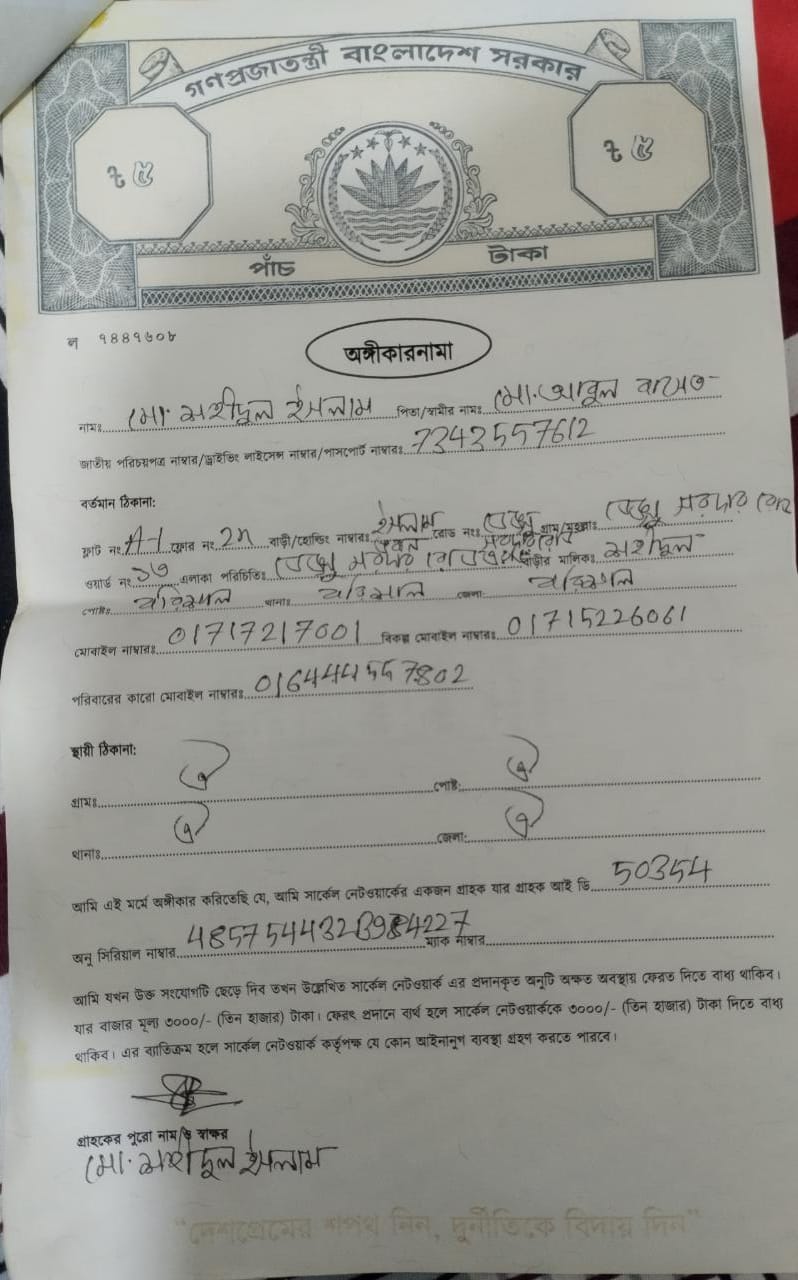 গণপ্রজাতন্ত্রী বাংলাদেশ সরকার
৳ ৫ ৳ ৫
পাঁচ টাকা
ল ৭৪৪৭৬০৮
অঙ্গীকারনামা
নামঃ মো. শহীদুল ইসলাম পিতা/স্বামীর নামঃ মো. আবুল বাসেত
জাতীয় পরিচয়পত্র নাম্বার/ড্রাইভিং লাইসেন্স নাম্বার/পাসপোর্ট নাম্বারঃ 7343557612
বর্তমান ঠিকানা:
ফ্লাট নং A-1 ফ্লোর নং 2n বাড়ী/হোল্ডিং নাম্বারঃ ইসলাম ভবন রোড নংঃ গ্রাম/মহল্লাঃ
ওয়ার্ড নং ১৬ এলাকা পরিচিতিঃ বাড়ীর মালিকঃ শহীদুল
পোষ্টঃ বরিশাল থানাঃ বরিশাল জেলা: বরিশাল
মোবাইল নাম্বারঃ 01717217001 বিকল্প মোবাইল নাম্বারঃ 01715226061
পরিবারের কারো মোবাইল নাম্বারঃ
স্থায়ী ঠিকানা:
গ্রামঃ পোষ্ট:
থানাঃ জেলা:
আমি এই মর্মে অঙ্গীকার করিতেছি যে, আমি সার্কেল নেটওয়ার্কের একজন গ্রাহক যার গ্রাহক আই ডি 50354
অনু সিরিয়াল নাম্বার ম্যাক নাম্বার
আমি যখন উক্ত সংযোগটি ছেড়ে দিব তখন উল্লেখিত সার্কেল নেটওয়ার্ক এর প্রদানকৃত অনুটি অক্ষত অবস্থায় ফেরত দিতে বাধ্য থাকিব।
যার বাজার মূল্য ৩০০০/- (তিন হাজার) টাকা। ফেরৎ প্রদানে ব্যর্থ হলে সার্কেল নেটওয়ার্ককে ৩০০০/- (তিন হাজার) টাকা দিতে বাধ্য
থাকিব। এর ব্যতিক্রম হলে সার্কেল নেটওয়ার্ক কর্তৃপক্ষ যে কোন আইনানুগ ব্যবস্থা গ্রহণ করতে পারবে।
গ্রাহকের পুরো নাম ও স্বাক্ষর
মো. শহীদুল ইসলাম
“দেশপ্রেমের শপথ নিন, দুর্নীতিকে বিদায় দিন”